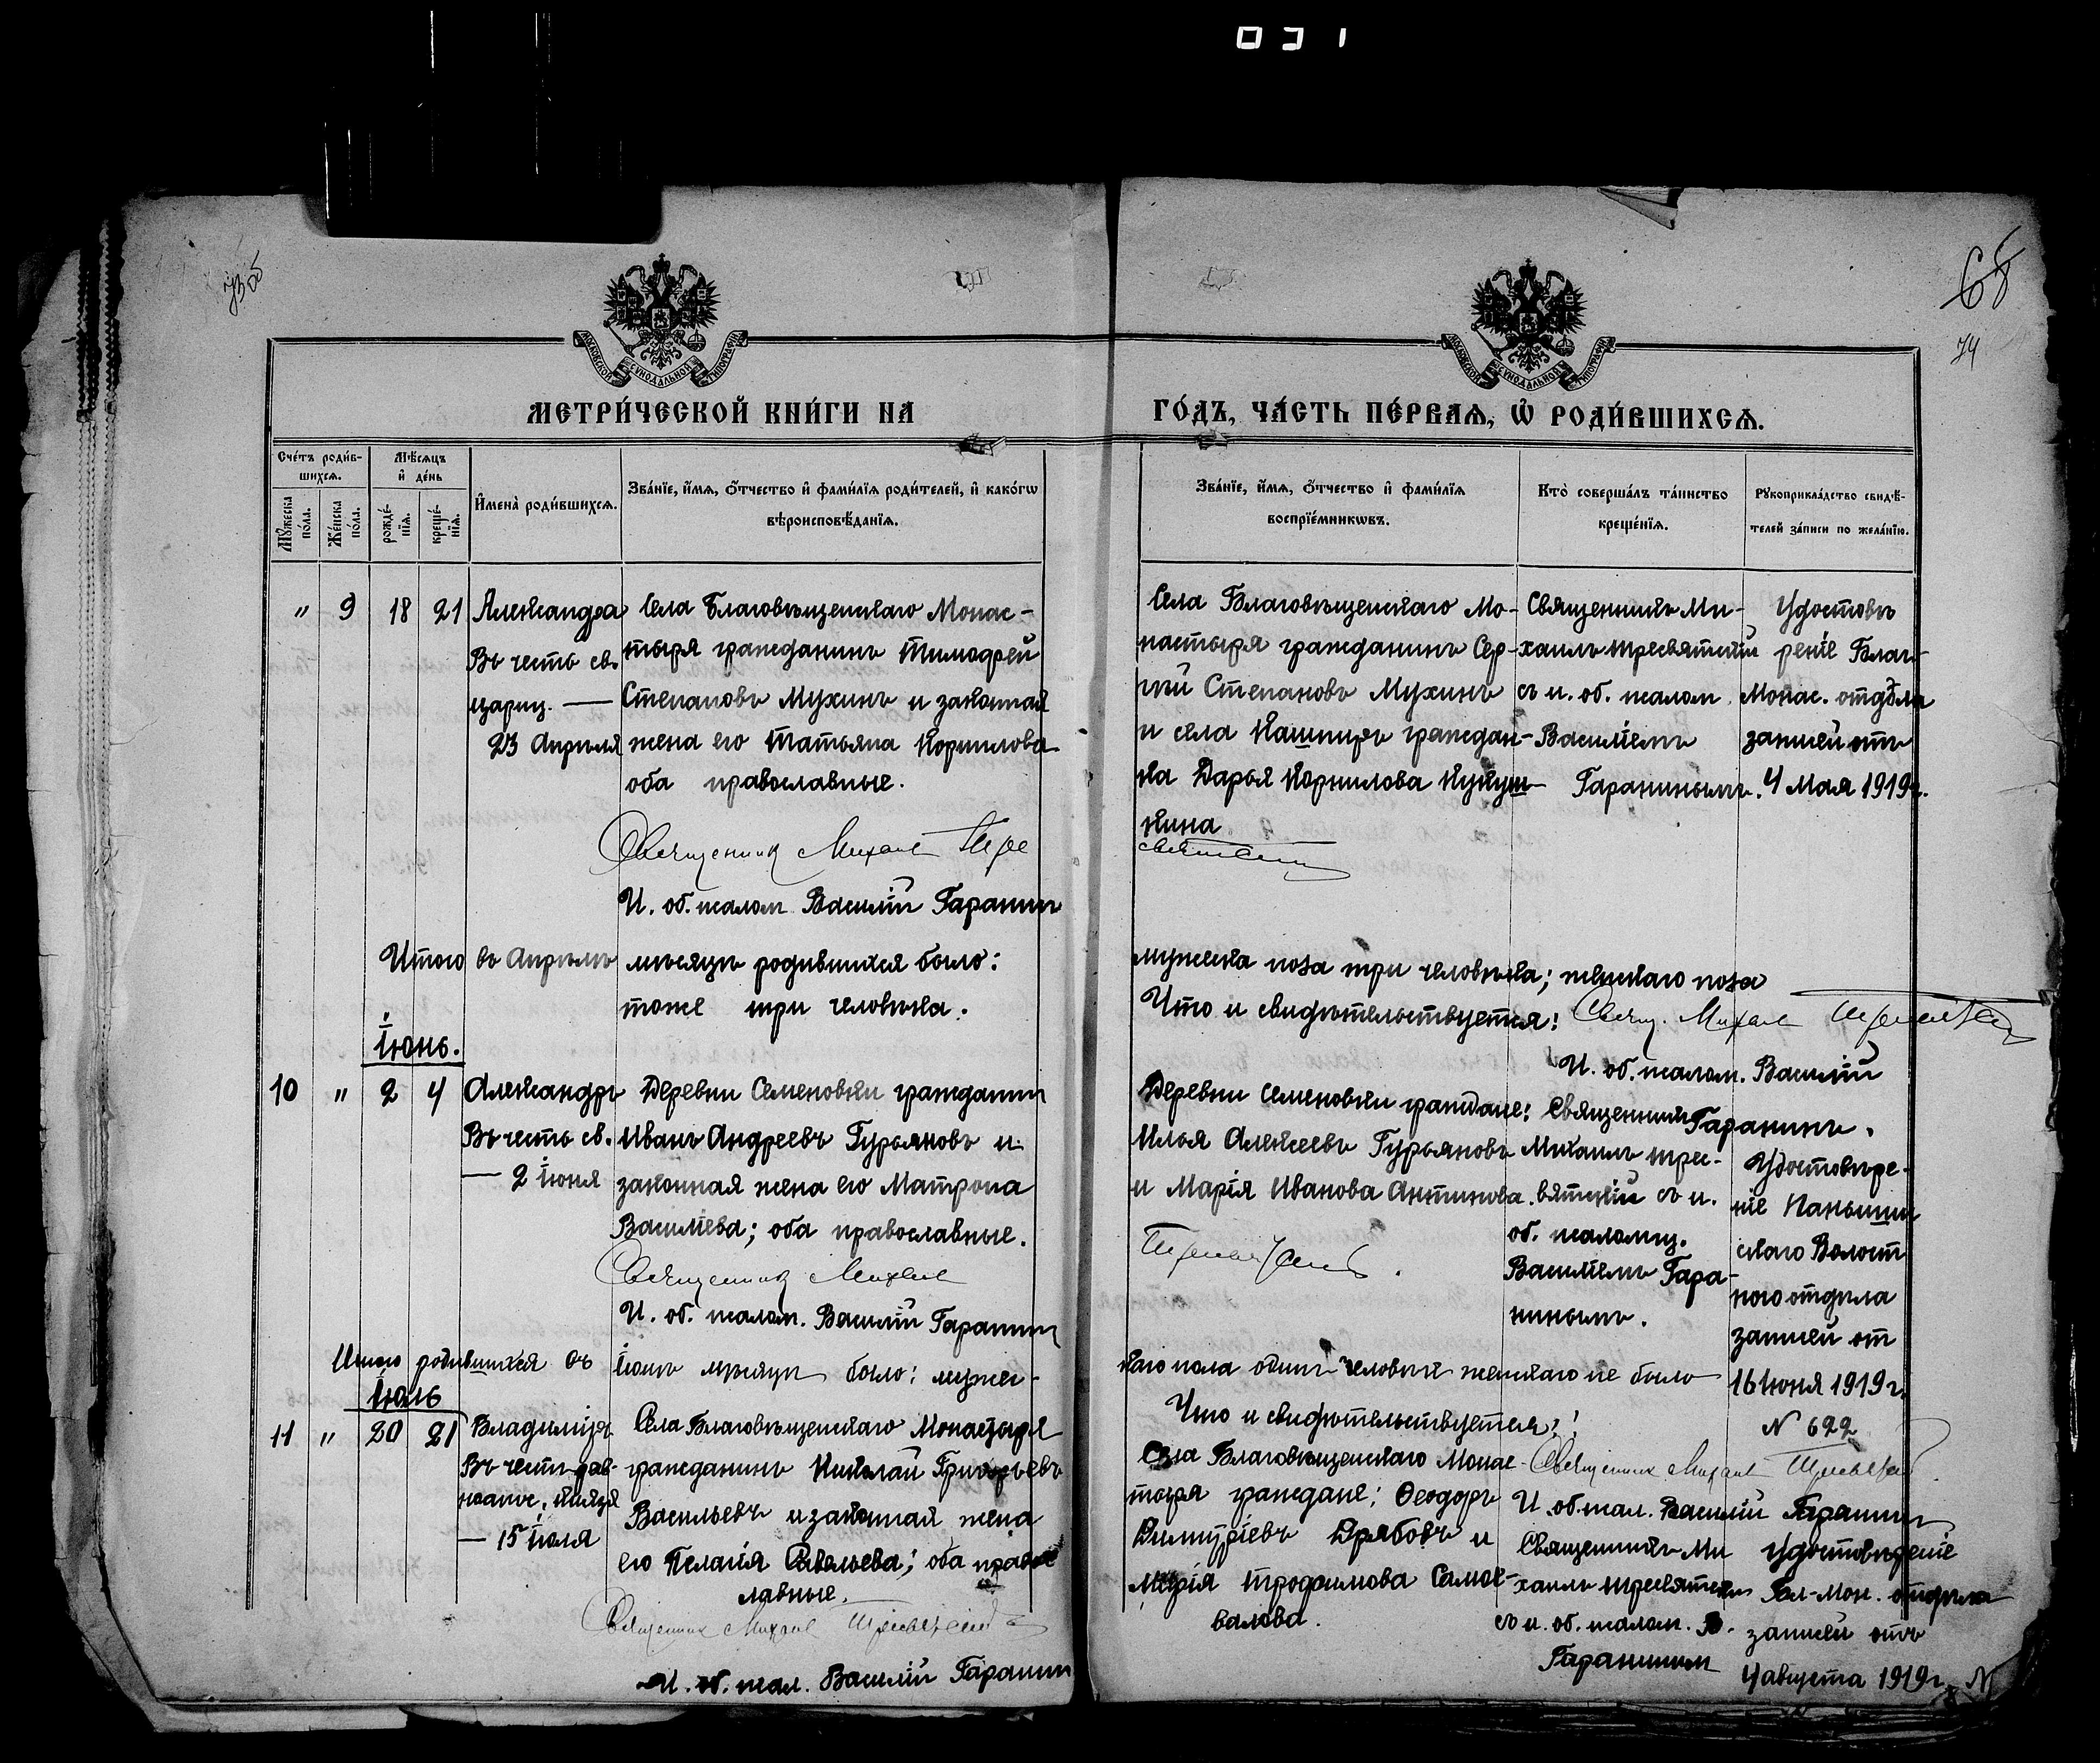 031
735
68
74
МОСКОВСКОЙ СѴНОДАЛЬНОЙ ТИПОГРАФІИ
МОСКОВСКОЙ СѴНОДАЛЬНОЙ ТИПОГРАФІИ
МЕТРИ́ЧЕСКОЙ КНИ́ГИ НА
ГО́ДЪ, ЧА́СТЬ ПЕ́РВАѦ, Ѿ РОДИ́ВШИХСѦ.
Сче́тъ роди́в-
шихсѧ.
Мꙋ́жеска по́ла.
Же́нска по́ла.
Мѣ́сѧцъ
и҆ де́нь
рожде́-
нїѧ.
креще́-
нїѧ.
И҆мена̀ роди́вшихсѧ.
Зва́нїе, и҆́мѧ, ѻ҆́тчество и҆ фами́лїѧ роди́телей, и҆ како́гѡ
вѣроисповѣ́данїѧ.
Зва́нїе, и҆́мѧ, ѻ҆́тчество и҆ фами́лїѧ
воспрїе́мникѡвъ.
Кто̀ соверша́лъ та́инство
креще́нїѧ.
Рꙋкоприкла́дство свидѣ́-
телей за́писи по жела́нїю.
" 9 18 21
Александра
Въ честь св.
цариц. —
23 Апрѣля
Села Благовѣщенскаго Монас-
тыря гражданинъ Тимофей
Степановъ Мухинъ и законная
жена его Татьяна Корнилова
оба православные.
Священник Михаил Тре
И. об. псалом. Василій Гаранин
Села Благовѣщенскаго Мо-
настыря гражданинъ Сер-
гѣй Степановъ Мухинъ
и села граждан-
ка Дарья Корнилова Кукуш-
кина
святский
Священникъ Ми-
хаилъ Тресвятскій
съ и. об. псалом.
Василіемъ
Гаранинымъ.
Удостовѣ
реніе Благ-
Монас. отдѣла
записей отъ
4 Мая 1919г.
Итого въ Апрѣлѣ мѣсяцѣ родившихся было:
тоже три человѣка.
мужеска пола три человѣка; женскаго пола
Что и свидѣтельствуется: Свящ. Михаил Тресвятский
И. об. псалом. Василій
Гаранинъ.
Іюнь.
10 " 2 4
Александръ
Въ честь св.
— 2 Іюня
Деревни Семеновки гражданин
Иванъ Андреевъ Гурьяновъ и
законная жена его Матрона
Василіева; оба православные.
Священник Михаил
И. об. псалом. Василій Гаранин
Деревни Семеновки граждане:
Илья Алексеевъ Гурьяновъ
и Марія Иванова Антипова.
Тресвятский.
Священникъ
Михаилъ Трес-
вятскій съ и.
об. псаломщ.
Василіемъ Гара-
нинымъ.
Удостовѣре-
ніе Паньшин
скаго Волост
ного отдѣла
записей от
16 Іюня 1919 г.
N 622
Итого родившихся въ Іюнѣ мѣсяцѣ было: мужес-
каго пола одинъ человѣкъ женскаго не было
Что и свидѣтельствуется:
Священник Михаил Тресвятский
И. об. псал. Василій Гаранин
Іюль
11 " 20 21
Владиміръ
Въ честь рав-
ноапос. князя
— 15 Іюля
Села Благовѣщенскаго Монастыря
гражданинъ Николай Григорьевъ
Васильевъ и законная жена
его Пелагія Савельева; оба право
славные.
Священник Михаил Тресвятский
И. об. псал. Василій Гаранин
Села Благовѣщенскаго Монас-
тыря граждане: Ѳеодоръ
Димитріевъ Дрябовъ и
Марія Трофимова Самос-
валова.
Священникъ Ми
хаилъ Тресвятскій
съ и. об. псалом. В.
Гаранином
Удостовѣреніе
Бл-Мон. отдѣла
записей отъ
4 августа 1919 г. N